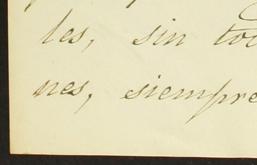 les, sin to
nes, siempre